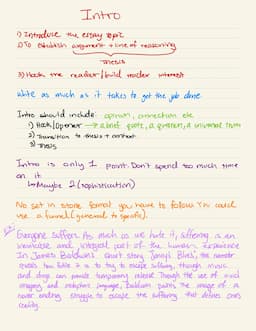 Intro
1) Introduce the essay topic
2) To establish argument + line of reasoning
Thesis
3) Hook the reader/build reader interest
Write as much as it takes to get the job done
Intro should include: opinion, connection etc
1) Hook/Opener → a brief quote, a question, a universal truth
2) Transition to thesis + context
3) Thesis
Intro is only 1 point. Don't spend too much time
on it
↳ Maybe 2 (sophistication)
No set in stone format you have to follow. You could
use a funnel (general to specific).
Everyone suffers. As much as we hate it, suffering is an
inevitable and integral part of the human experience
In James Baldwin's short story "Sonny's Blues", the narrator
reveals how futile it is to try to escape suffering, though music
and drugs can provide temporary release. Through the use of vivid
imagery and metaphoric language, Baldwin paints the image of a
never ending struggle to escape the suffering that defines one's
reality.